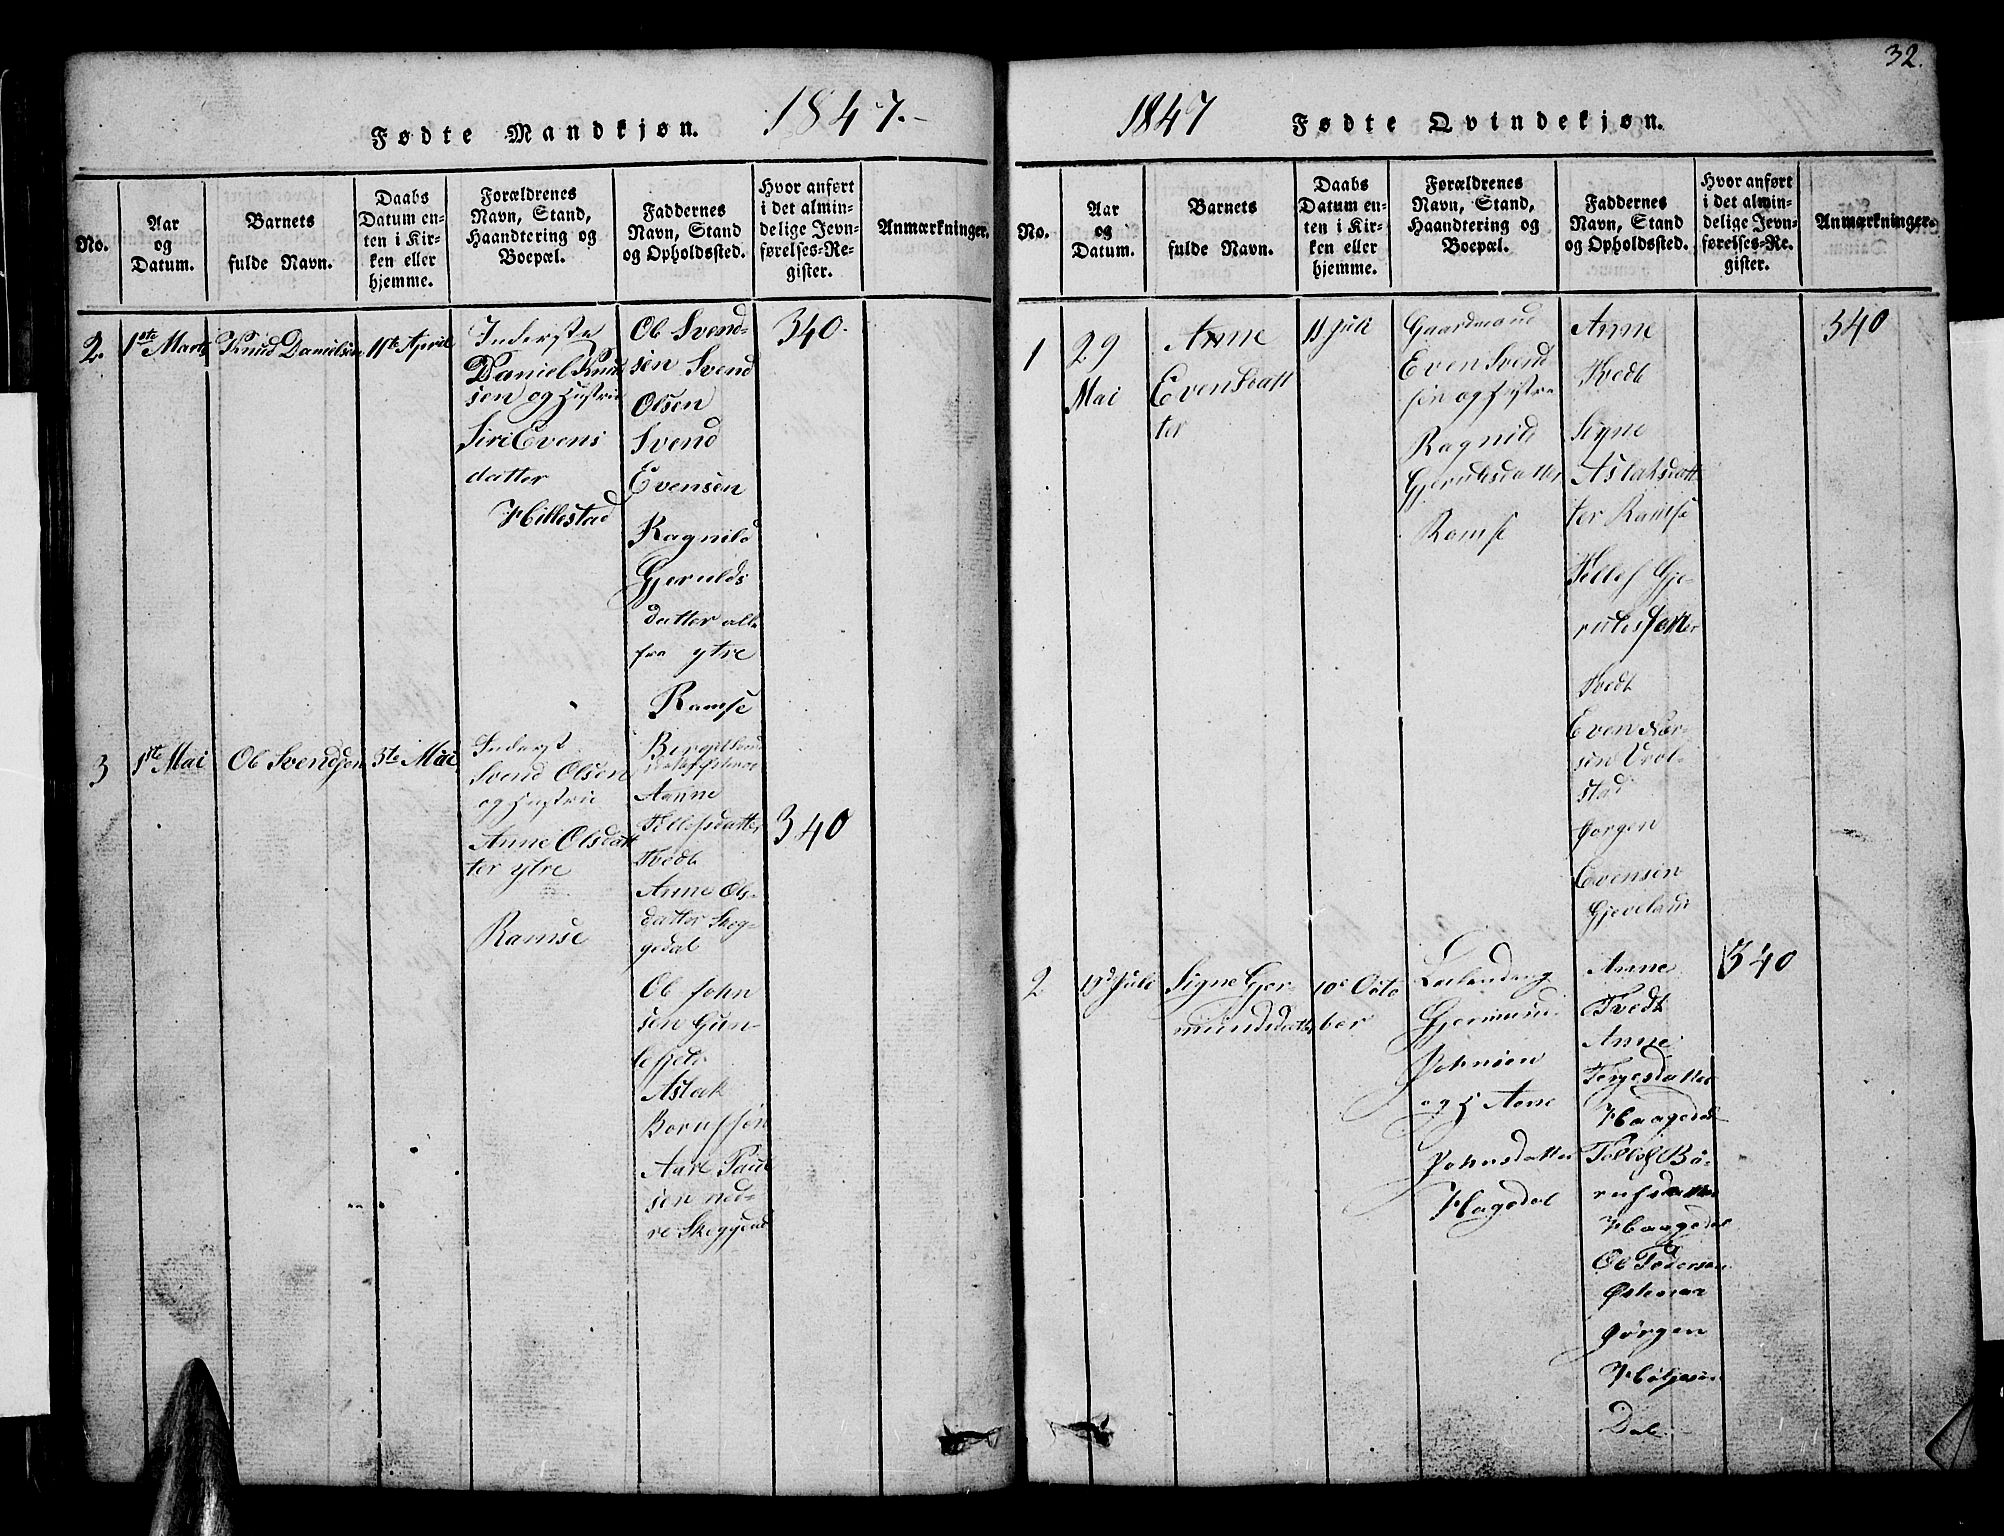 32.
Fødte Mandkjøn. 1847.-
No.
Aar
og
Datum.
Barnets
fulde Navn.
Daabs
Datum en-
ten i Kir-
ken eller
hjemme.
Forældrenes
Navn, Stand,
Haandtering og
Boepæl.
Faddernes
Navn, Stand
og Opholdssted.
Hvor anført
i det almin-
delige Jevn-
førelses-Re-
gister.
Anmærkninger.
2.
1ste Marts
Knud Danielsen
11te April
Inderste
Daniel Knud
sen og Hustrue
Siri Evens
datter
Hillestad
Ole Svend-
sen Svend
Olsen
Svend
Evensen
Ragnild
Gjerulds
datter alle
fra ytre
Ramse
340.
3
1ste Mai
Ole Svendsen
3te Mai
Inderst
Svend Olsen
og Hustrue
Anne Olsdatt
ter ytre
Ramse
Aanne
Tellefsdatter
Tvedt
Anne Ols-
datter Skeg-
gedal
Ole John
sen Gun-
Aslak
Aare Paul
sen ned-
re
340
1847 Fødte Qvindekjøn.
No.
Aar
og
Datum.
Barnets
fulde Navn.
Daabs
Datum en-
ten i Kir-
ken eller
hjemme.
Forældrenes
Navn, Stand,
Haandtering og
Boepæl.
Faddernes
Navn, Stand
og Opholdssted.
Hvor anført
i det almin-
delige Jevn-
førelses-Re-
gister.
Anmærkninger.
1
29
Mai
Anne
Evensdatt
ter
11 Juli
Gaardmand
Even Svend
sen og Hustrue
Ragnild
Gjeruldsdatter
Ramse
Anne
Tvedt
Signe
Aslaksdatt
ter Ramse
Tellef Gje-
Tvedt
Even
sen
stad
Jørgen
Evensen
Gjeveland
340
2
Juli
Signe Gjer-
mundsdatter
10e Octo
ber
Leilending
Gjermund
Johnsen
og H Anne
Johnsdatter
Hagedal
Anne
Tvedt
Anne
Terjesdatter
Haagedal
Tellef Bø-
Haagedal
Ole Pedersen
Jørgen
Dale
340